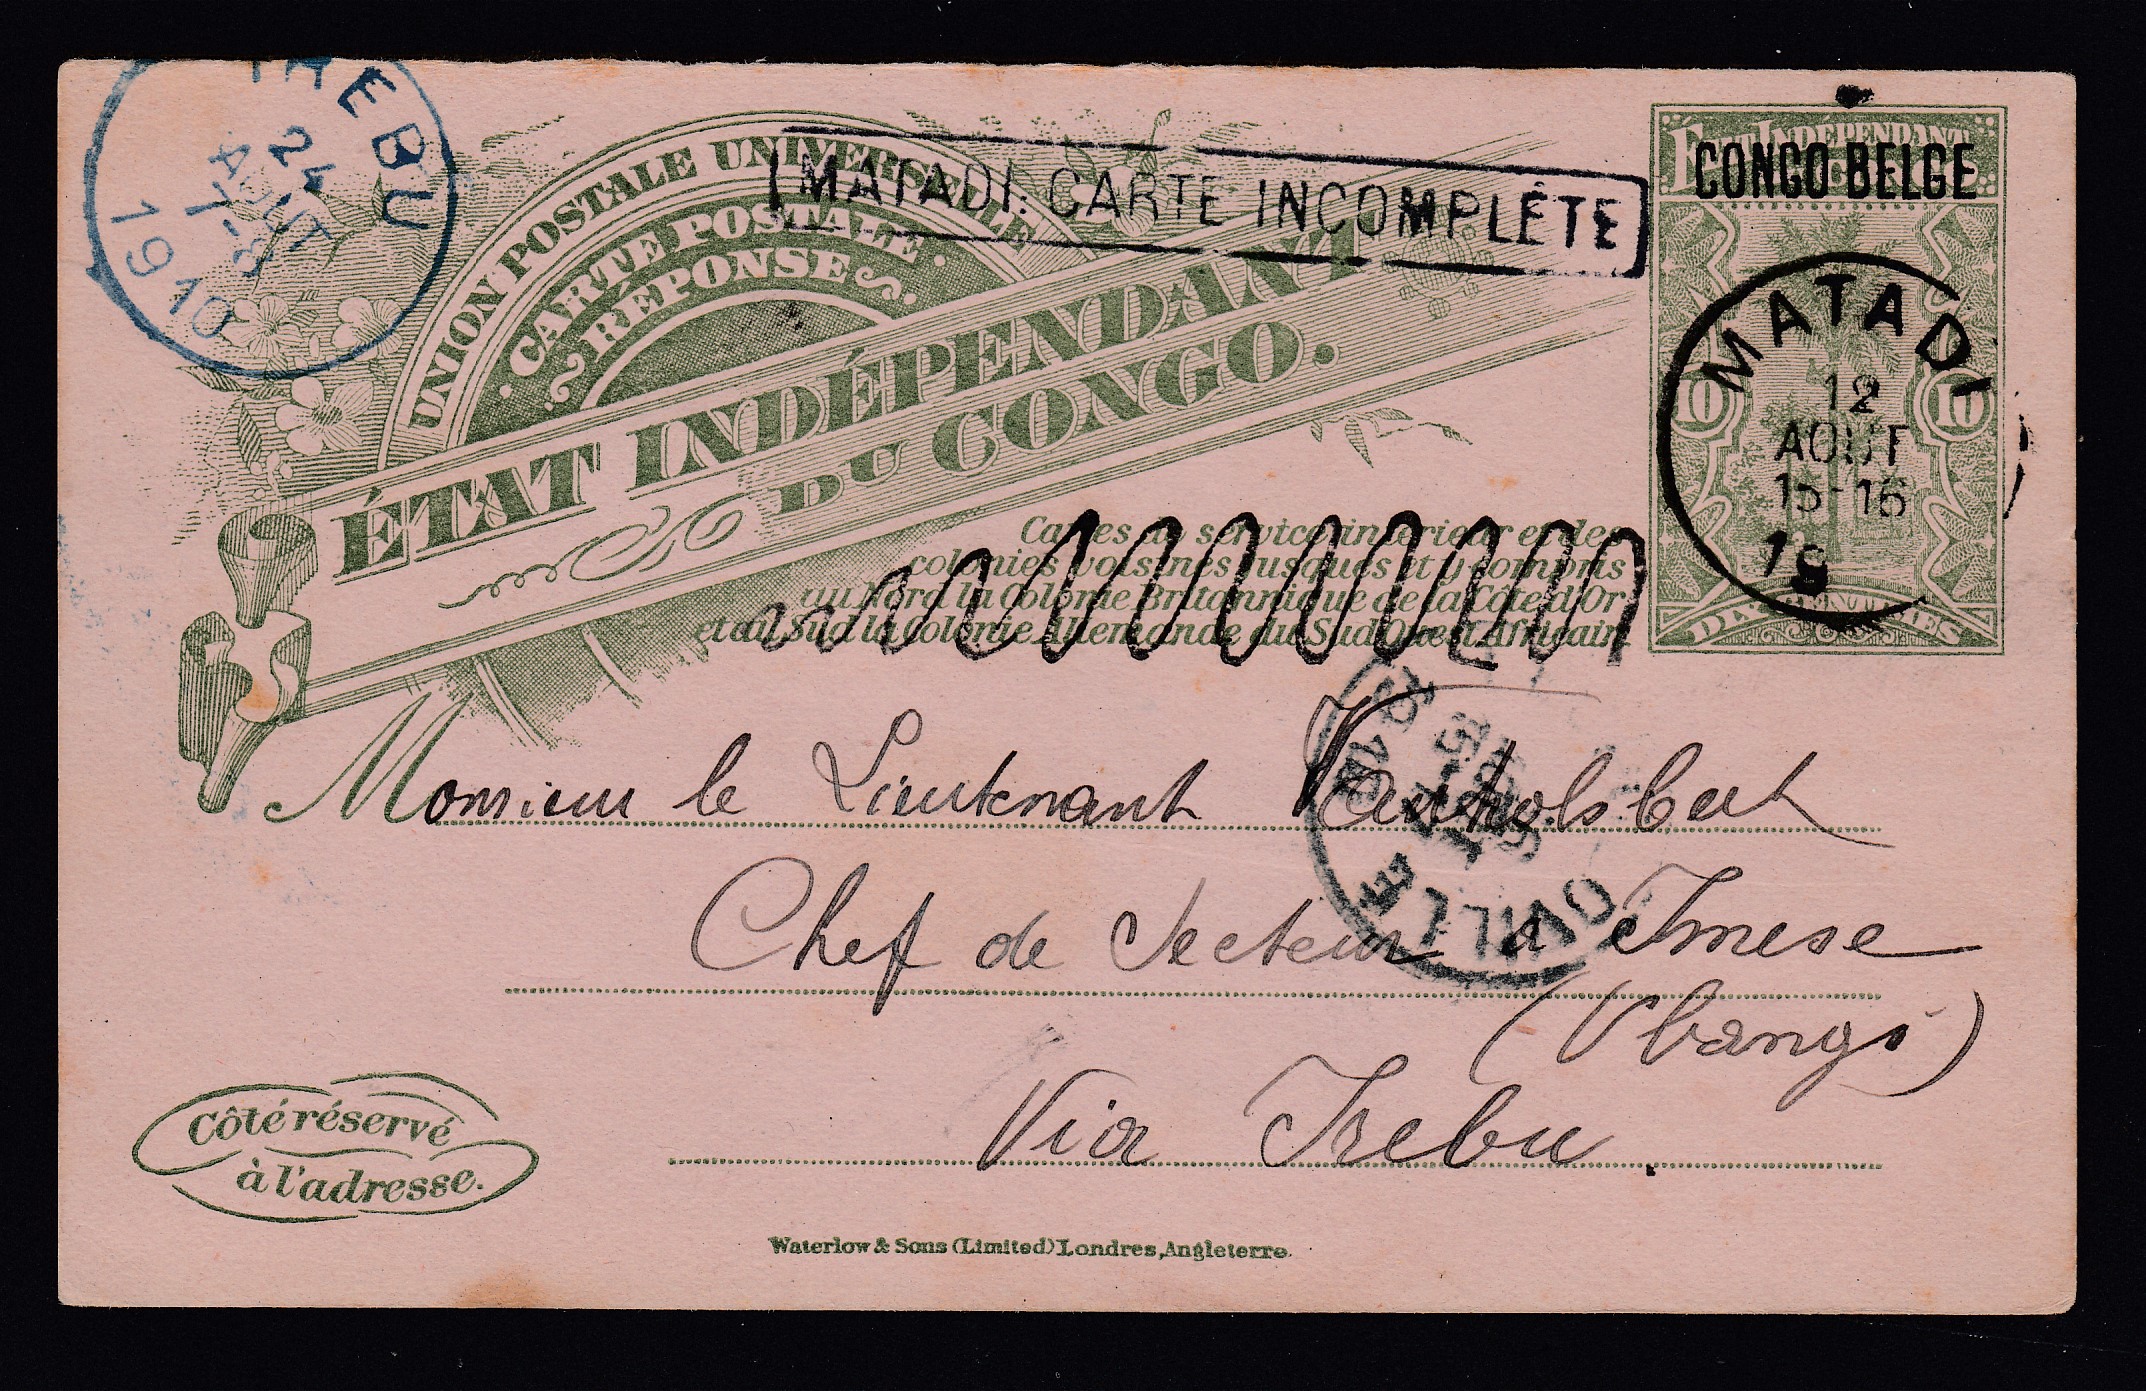 IREBU
24
AOUT
7-8
1910
UNION POSTALE UNIVERSELLE
CARTE POSTALE
RÉPONSE
MATADI: CARTE INCOMPLÈTE
ÉTAT INDÉPENDANT
DU CONGO.
ÉTAT INDÉPENDANT
CONGO BELGE
10 10
DIX CENTIMES
MATADI
12
AOUT
15-16
19
Cartes du service intérieur et des
colonies voisines jusques et y compris
au Nord la Colonie Britannique de la Côte d'Or
et au Sud la Colonie Allemande du Sud Ouest Africain
Monsieur le Lieutenant
Chef de Secteur à Imese
(Ubangi)
Via Irebu.
Côté réservé
à l'adresse.
Waterlow & Sons (Limited) Londres, Angleterre.